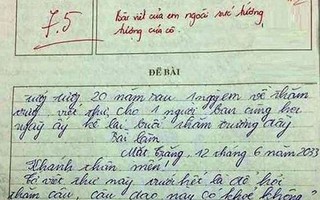 7.5
Bài viết của em ngoài sức tưởng
tượng của cô.
ĐỀ BÀI
20 năm sau 1 ngày em về thăm
trường viết thư cho 1 người bạn cùng học
ngày ấy kể lại buổi thăm trường đầy
Bài làm
Mặt Trăng, 12 tháng 6 năm 2033
Khanh thân mến!
Tớ viết thư này trước hết là để hỏi
thăm cậu, cậu dạo này có khỏe không?